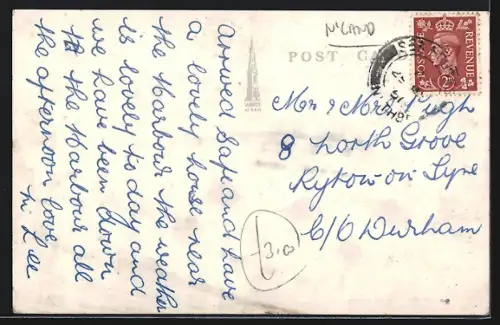 N'LAND
POST CA
POSTAGE
REVENUE
arrived safe and have
a lovely house near
the Harbour the weather
is lovely to day and
we have been down
to the Harbour all
the afternoon love
Mr & Mrs Pugh
8 North Grove
Ryton on Tyne
C/O Durham
3.00